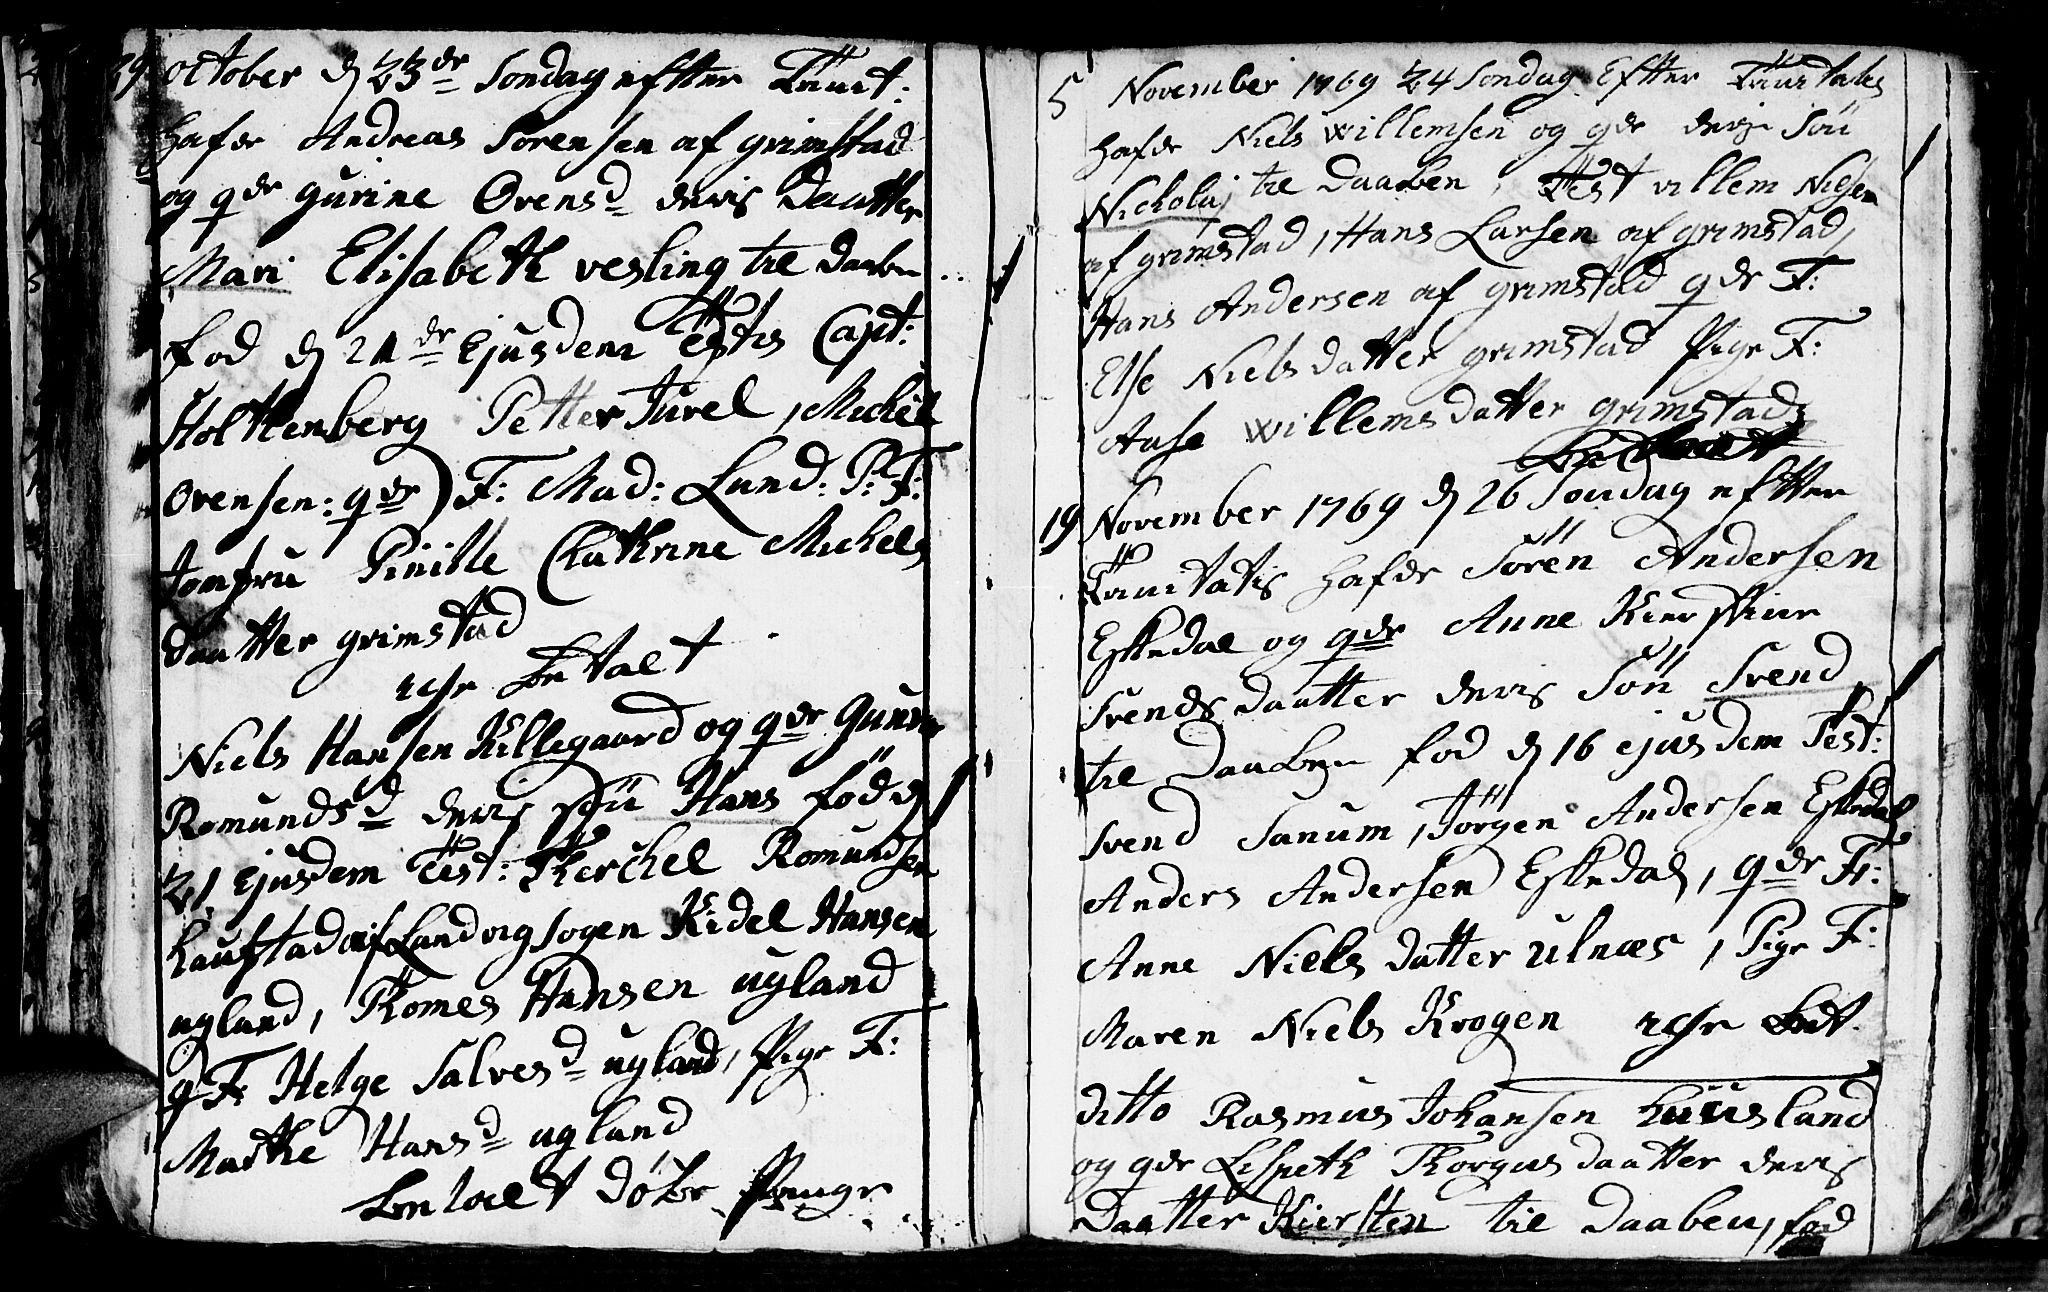 29 October d 23de Sondag efter Trinit:
hafde Andreas Sorensen af grimstad
og qde gurine Ovensd deris Daatter
Mari Elisabeth vesling til daaben
fod d 21de Ejusdem Testis Capt:
Holttenberg Petter Jurel, Michel
Ovensen: qde F: Mad: Lund: P: F:
Jomfru Pinille Chathrine Michels
daatter grimstad
betalt
Niels Hansen Killegaard og qde Gunver
Romundsd deris Søn Hans fød d
21 Ejusdem Test: Therchel Romundsen
Laufstad af Landvig sogen Kidel Hansen
ugland, Thomes Hansen ugland
q F: Helge Salvesd ugland, Pige F:
Marthe Hansd ugland
betalt døbe Penge
5 November 1769 24 Sondag Efter Trinitatis
hafde Niels Willemsen og qde deris Søn
Nicholai til Daaben, Test Villem Nilsen
af grimstad, Hans Larsen af grimstad,
Hans Andersen af grimstad qde F:
Else Nielsdatter grimstad Pige F:
Aase Willemsdatter grimstad
19 November 1769 d 26 Sondag efter
Trinitatis hafde Sören Andersen
Eskedal og qde Anne Kierstine
Svends daatter deris Sön Svend
til Daaben fod d 16 ejusdem Test:
Svend Sanum, Jörgen Andersen Eskedal
Anders Andersen Eskedal, qde F:
Anne Niels datter Ulnæs, Pige F:
Maren Niels Krogen Bet.
ditto Rasmus Johansen huusland
og qde Lispeth Thorgus daatter deris
Daatter Kiersten til Daaben, fod